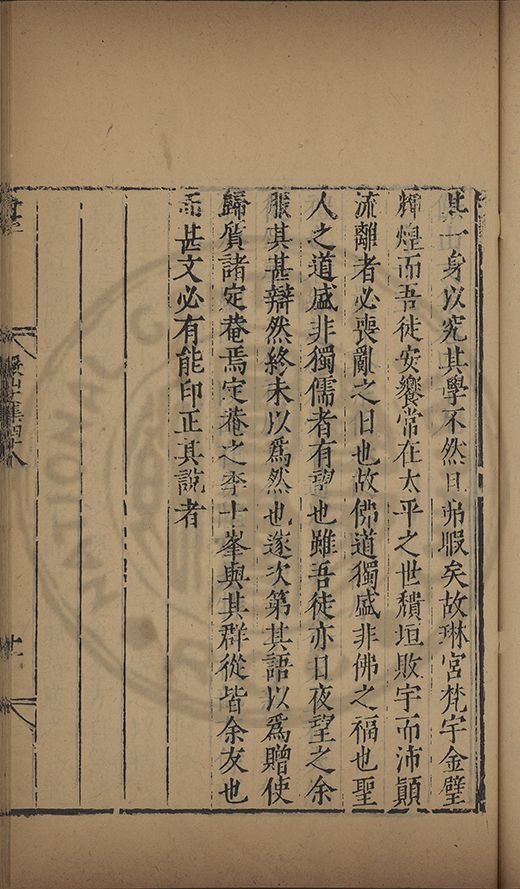 其一身以究其學不然且弗暇矣故琳宮梵宇金璧
輝煌而吾徒安饗常在太平之世頹垣敗宇而沛顛
流離者必喪亂之日也故佛道獨盛非佛之福也聖
人之道盛非獨儒者有望也雖吾徒亦日夜望之余
服其甚辯然終未以爲然也遂次第其語以爲贈使
歸質諸定菴焉定菴之李十峯與其群從皆余友也
而甚文必有能印正其說者